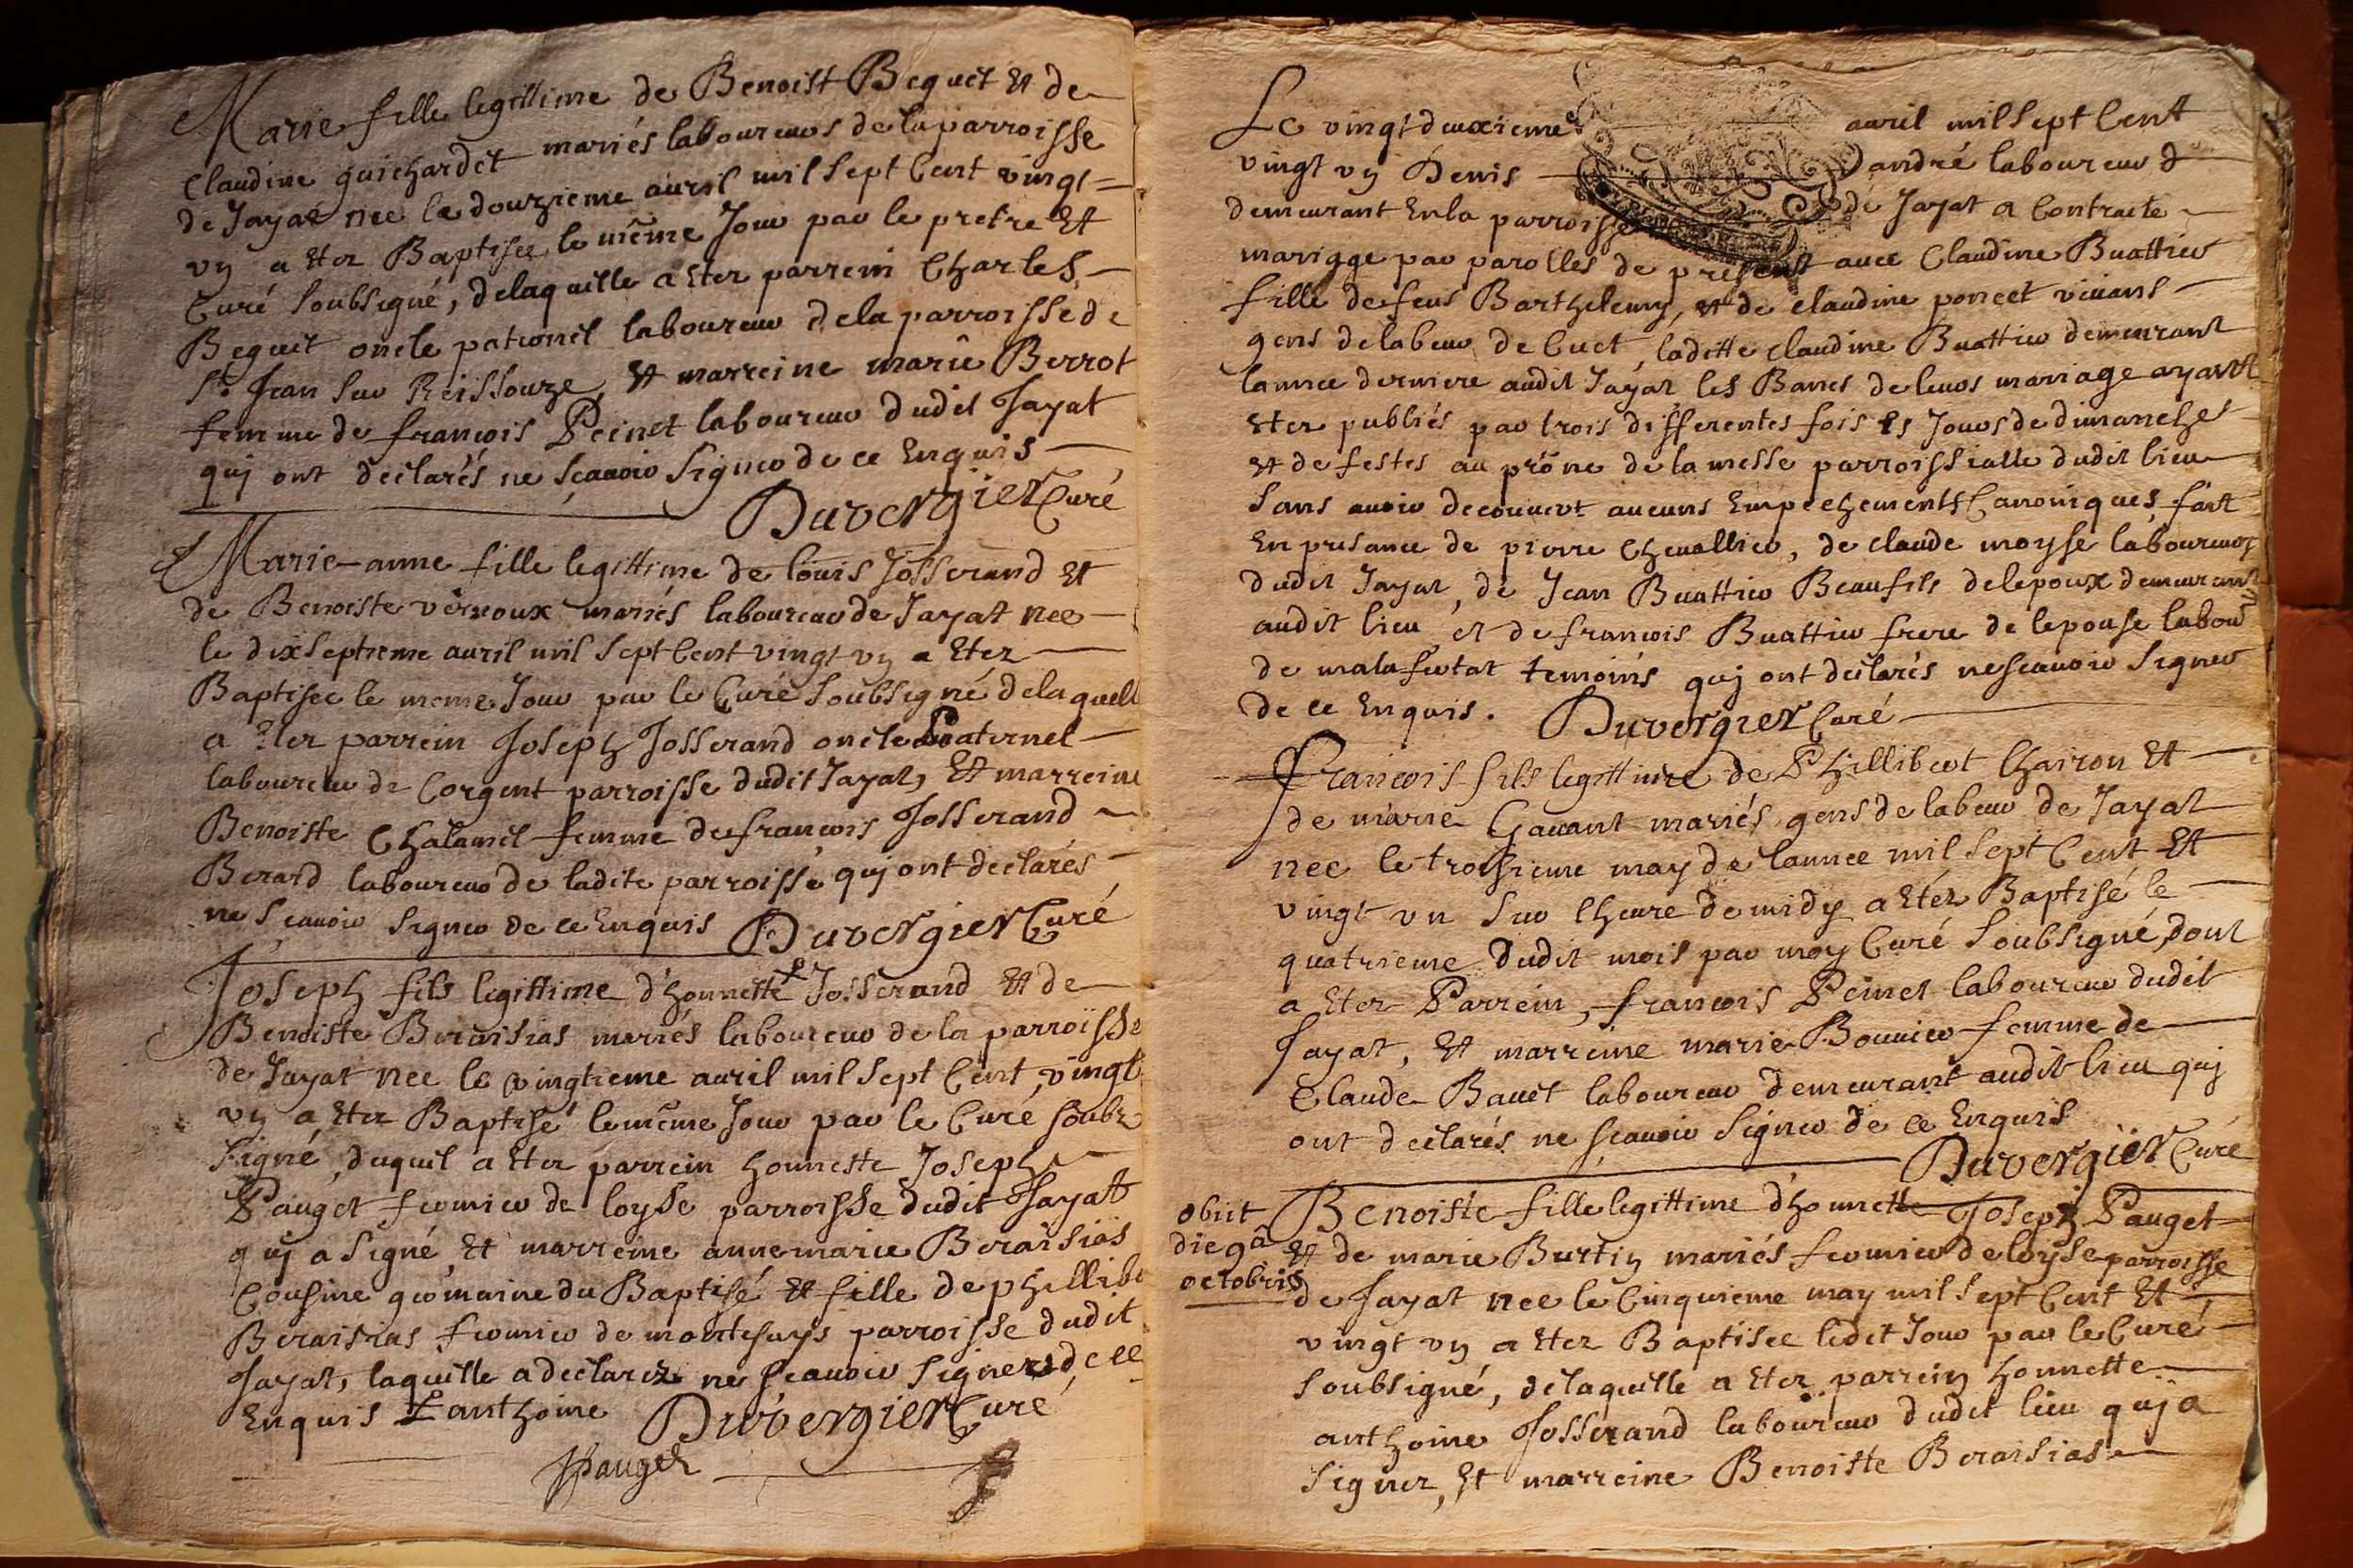 Marie fille legittime de Benoist Beguet Et de
Claudine guichardet mariés laboureurs de la parroisse
de Jayat nee le douzieme auril mil sept Cent vingt
vn a Eter Baptisée le même Jour par le pretre Et
Curé soubsigné, delaquelle a Eter parrein Charles
Beguet oncle paternel laboureur de la parroisse de
St Jean sur Reissouze, Et marreine marie Berrot
femme de francois Peinet laboureur dudit Jayat
quj ont declarés ne sçauoir signer de ce Enquis
Duvergier Curé
Marie-anne fille legittime de loüis Josserand Et
de Benoiste vernoux mariés laboureur de Jayat nee
le dixseptieme auril mil sept Cent vingt vn a Eter
Baptisée le meme Jour par le Curé soubsigné delaquelle
a Eter parrein Joseph Josserand oncle Paternel
laboureur de Corgent parroisse dudit Jayat, Et marreine
Benoiste Chalamel femme de francois Josserand
Berard laboureur de ladite parroisse quj ont declarés
ne sçauoir signer de ce Enquis Duvergier Curé
Joseph fils legittime d'honnette Josserand Et de
Benoiste Beraisias mariés laboureur de la parroisse
de Jayat nee le vingtieme auril mil sept Cent vingt
vn a Eter Baptisé le même Jour par le Curé soub
signé, duquel a Eter parrein honneste Joseph
Pauget fermier de loyse parroisse dudit Jayat
quj a signé, Et marreine anne marie Beraisias
Cousine germaine du Baptisé Et fille de phillibe
Beraisias fermier de montesuys parroisse dudit
Jayat, laquelle a declarez ne sçauoir signer de ce
Enquis £ anthoine Duvergier Curé
JPauget
Le vingt deuxieme auril mil sept Cent
vingt vn Denis Dandré laboureur &
demeurant En la parroisse de Jayat a Contracte
mariage par parolles de present auec Claudine Buattier
fille de feus Barthelemy, et de claudine poncet viuans
gens de labeur de Cuet, laditte claudine Buattier demeurant
lannee derniere audit Jayat les Bancs de leurs mariage ayant
Eter publiés par trois differentes fois Es Jours de dimanches
et de festes au prône de la messe parroissialle dudit lieu
sans auoir decouuert aucuns Empechements Canoniques fait
En presance de pierre Cheuallier, de claude moyse laboureurs
dudit Jayat, de Jean Buattier Beaufils delepoux demeurant
audit lieu et de francois Buattier frere de lepouse labour
de malafretat temoins quj ont declarés ne scauoir signer
de ce Enquis. Duvergier Curé
Francois fils legittime de Phillibert Chairon Et
de marie Gauant mariés gens de labeur de Jayat
nee le troisieme may de lannee mil sept Cent Et
vingt vn sur lheure de midy a Eter Baptisé le
quatrieme dudit mois par moy Curé soubsigné, dont
a Eter Parrein, francois Peinet laboureur dudit
Jayat, Et marreine marie Bouuier femme de
Claude Bauet laboureur demeurant audit lieu quj
ont declarés ne sçauoir signer de ce Enquis
Duvergier Curé
obiit
die 9a
octobris
Benoiste fille legittime d'honnette Joseph Pauget
Et de marie Burtin mariés fermier de loyse parroisse
de Jayat nee le Cinquieme may mil sept Cent Et
vingt vn a Eter Baptisée ledit Jour par le Curé
soubsigné, delaquelle a Eter parrein honnette
anthoine Josserand laboureur dudit lieu quj a
signer, Et marreine Benoiste Beraisias